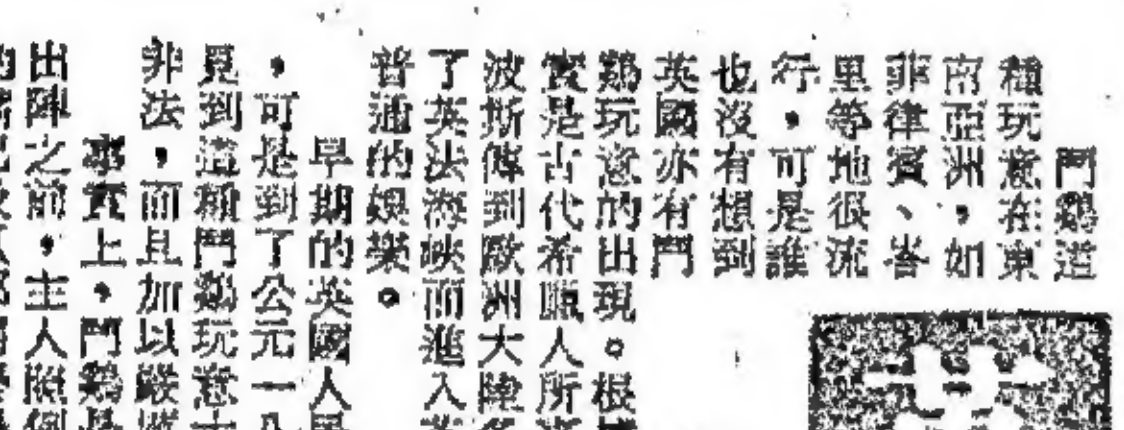 鬥鷄這
種玩意在東
南亞洲，如
菲律賓、峇
里等地很流
行，可是誰
也沒有想到
英國亦有鬥
鷄玩意的出現。根
實是古代希臘人所
波斯傳到歐洲大陸
了英法海峽而進入
普通的娛樂。
早期的英國人
，可是到了公元一八
見到這種鬥鷄玩意
非法，而且加以嚴
事實上，鬥鷄是
出陣之前，主人照例